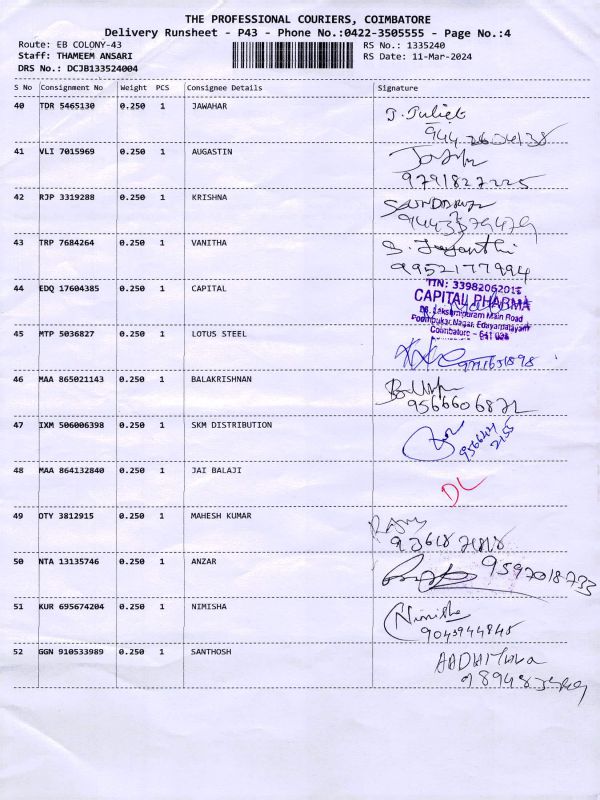 THE PROFESSIONAL COURIERS, COIMBATORE
Delivery Runsheet - P43 - Phone No.:0422-3505555 - Page No.:4
Route: EB COLONY-43
RS No.: 1335240
Staff: THAMEEM ANSARI
RS Date: 11-Mar-2024
DRS No.: DCJB133524004
S No Consignment No Weight PCS Consignee Details Signature
40 TDR 5465130 0.250 1 JAWAHAR J. Juliet
41 VLI 7015969 0.250 1 AUGASTIN
9791827225
42 RJP 3319288 0.250 1 KRISHNA
9443379479
43 TRP 7684264 0.250 1 VANITHA S. Jayanthi
9952177994
44 EDQ 17604385 0.250 1 CAPITAL TIN: 33982062015
CAPITAL PHARMA
Lakshmipuram Main Road
Poombukar Nagar, Edayarpalayam
Coimbatore - 641 025
45 MTP 5036827 0.250 1 LOTUS STEEL
46 MAA 865021143 0.250 1 BALAKRISHNAN
9566606872
47 IXM 506006398 0.250 1 SKM DISTRIBUTION
48 MAA 864132840 0.250 1 JAI BALAJI DL
49 OTY 3812915 0.250 1 MAHESH KUMAR
50 NTA 13135746 0.250 1 ANZAR 9597018733
51 KUR 695674204 0.250 1 NIMISHA Nimisha
9043944845
52 GGN 910533989 0.250 1 SANTHOSH